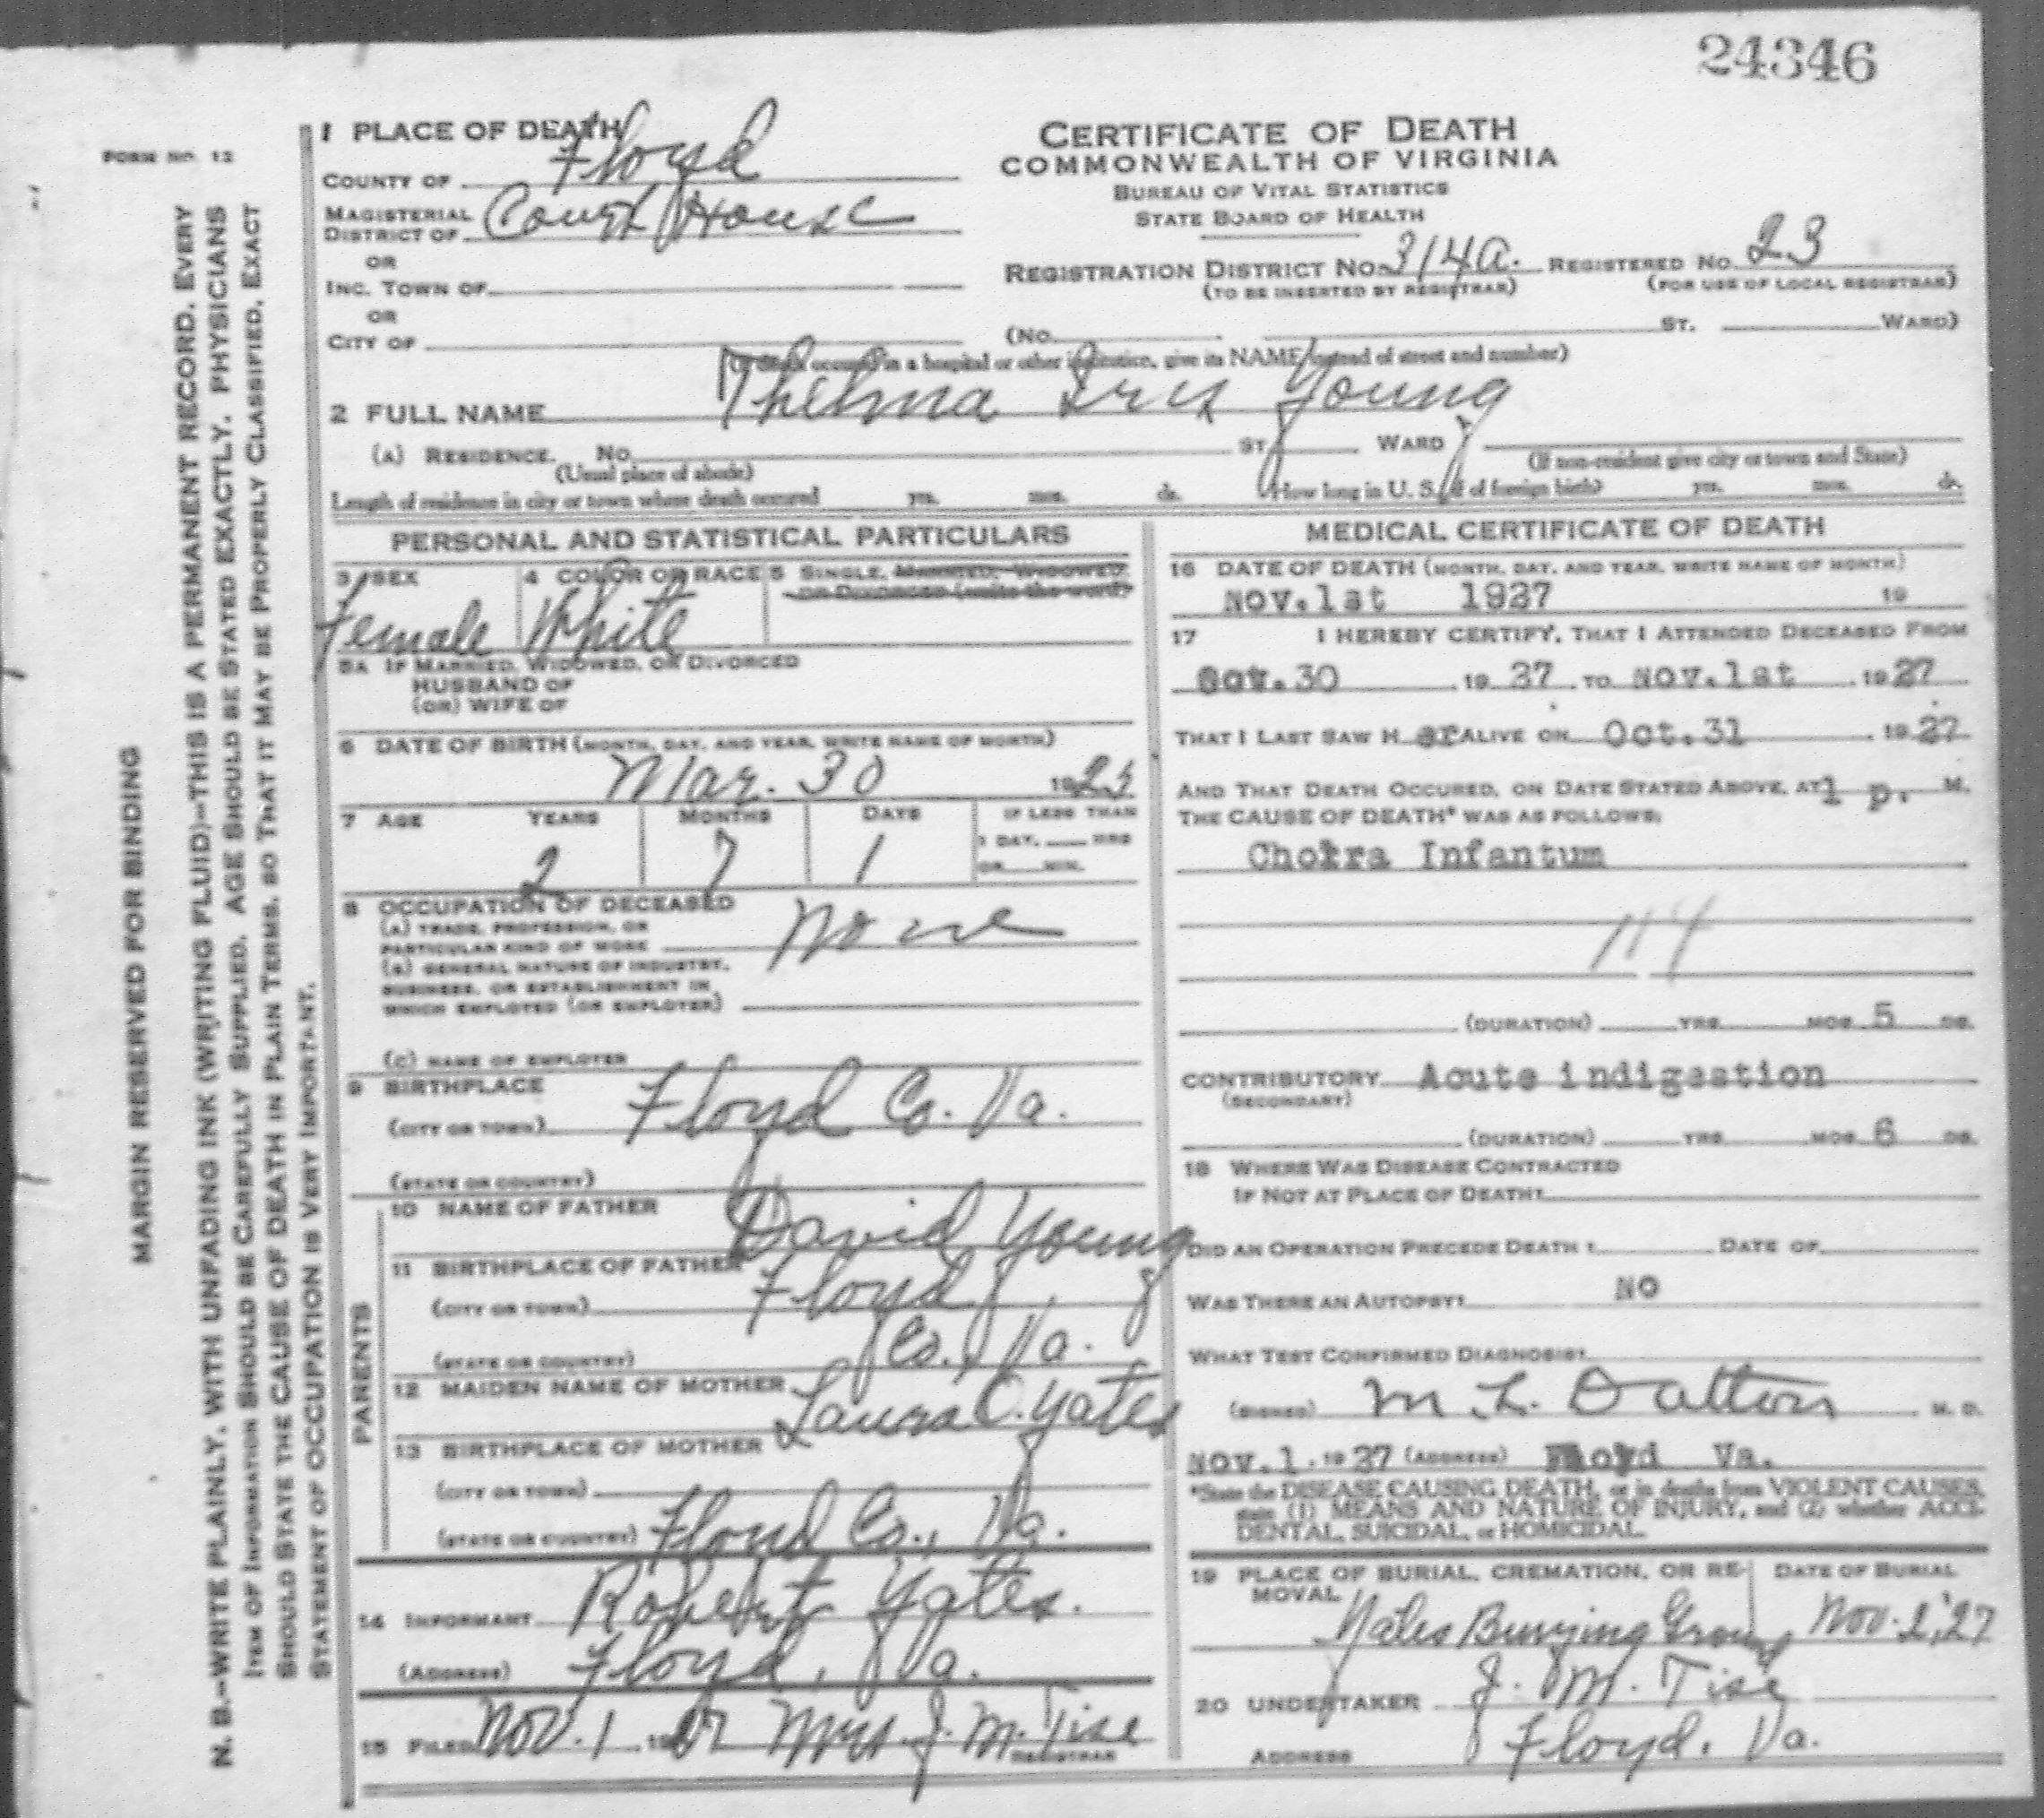 24346
FORM NO. 12
MARGIN RESERVED FOR BINDING
N. B.—WRITE PLAINLY, WITH UNFADING INK (WRITING FLUID)—THIS IS A PERMANENT RECORD. EVERY
ITEM OF INFORMATION SHOULD BE CAREFULLY SUPPLIED. AGE SHOULD BE STATED EXACTLY. PHYSICIANS
SHOULD STATE THE CAUSE OF DEATH IN PLAIN TERMS, SO THAT IT MAY BE PROPERLY CLASSIFIED. EXACT
STATEMENT OF OCCUPATION IS VERY IMPORTANT.
1 PLACE OF DEATH
COUNTY OF Floyd
MAGISTERIAL DISTRICT OF Court House
OR
INC. TOWN OF
OR
CITY OF
CERTIFICATE OF DEATH
COMMONWEALTH OF VIRGINIA
BUREAU OF VITAL STATISTICS
STATE BOARD OF HEALTH
REGISTRATION DISTRICT NO. 314a. REGISTERED NO. 23
(TO BE INSERTED BY REGISTRAR) (FOR USE OF LOCAL REGISTRAR)
(No. ST. WARD)
(If death occurred in a hospital or other institution, give its NAME instead of street and number)
2 FULL NAME Thelma Young
(A) RESIDENCE. No. ST. WARD
(Usual place of abode) (If non-resident give city or town and State)
Length of residence in city or town where death occured yrs. mos. ds. How long in U. S. if of foreign birth? yrs. mos. ds.
PERSONAL AND STATISTICAL PARTICULARS
3 SEX 4 COLOR OR RACE 5 SINGLE, MARRIED, WIDOWED, OR DIVORCED (write the word)
Female White
5A IF MARRIED, WIDOWED, OR DIVORCED
HUSBAND OF
(OR) WIFE OF
6 DATE OF BIRTH (MONTH, DAY, AND YEAR, WRITE NAME OF MONTH)
Mar. 30
7 AGE YEARS MONTHS DAYS IF LESS THAN
1 DAY, HRS
OR MIN.
2 7 1
8 OCCUPATION OF DECEASED
(A) TRADE, PROFESSION, OR
PARTICULAR KIND OF WORK None
(B) GENERAL NATURE OF INDUSTRY,
BUSINESS, OR ESTABLISHMENT IN
WHICH EMPLOYED (OR EMPLOYER)
(C) NAME OF EMPLOYER
9 BIRTHPLACE
(CITY OR TOWN) Floyd Co. Va.
(STATE OR COUNTRY)
PARENTS
10 NAME OF FATHER David Young
11 BIRTHPLACE OF FATHER
(CITY OR TOWN) Floyd
(STATE OR COUNTRY) Co. Va.
12 MAIDEN NAME OF MOTHER Laura C. Yates
13 BIRTHPLACE OF MOTHER
(CITY OR TOWN)
(STATE OR COUNTRY) Floyd Co., Va.
14 INFORMANT Robert Yates.
(ADDRESS) Floyd, Va.
15 FILED Nov. 1 1927 Mrs J. M. Tise
REGISTRAR
MEDICAL CERTIFICATE OF DEATH
16 DATE OF DEATH (MONTH, DAY, AND YEAR, WRITE NAME OF MONTH)
Nov.1st 1927 19
17 I HEREBY CERTIFY, THAT I ATTENDED DECEASED FROM
Oct.30 19 27 TO Nov.1st 19 27
THAT I LAST SAW H er ALIVE ON Oct.31 19 27
AND THAT DEATH OCCURED, ON DATE STATED ABOVE, AT 1 p. M.
THE CAUSE OF DEATH* WAS AS FOLLOWS:
Infantum
114
(DURATION) YRS. MOS. 5 DS.
CONTRIBUTORY Acute indigestion
(SECONDARY)
(DURATION) YRS. MOS. 6 DS.
18 WHERE WAS DISEASE CONTRACTED
IF NOT AT PLACE OF DEATH?
DID AN OPERATION PRECEDE DEATH? DATE OF
WAS THERE AN AUTOPSY? NO
WHAT TEST CONFIRMED DIAGNOSIS?
(SIGNED) M. L. Dalton M. D.
Nov.1. 19 27 (ADDRESS) Floyd Va.
*State the DISEASE CAUSING DEATH, or in deaths from VIOLENT CAUSES,
state (1) MEANS AND NATURE OF INJURY, and (2) whether ACCI-
DENTAL, SUICIDAL, or HOMICIDAL.
19 PLACE OF BURIAL, CREMATION, OR RE-
MOVAL DATE OF BURIAL
Yates Burying Ground Nov. 2, '27
20 UNDERTAKER J. M. Tise
ADDRESS Floyd, Va.